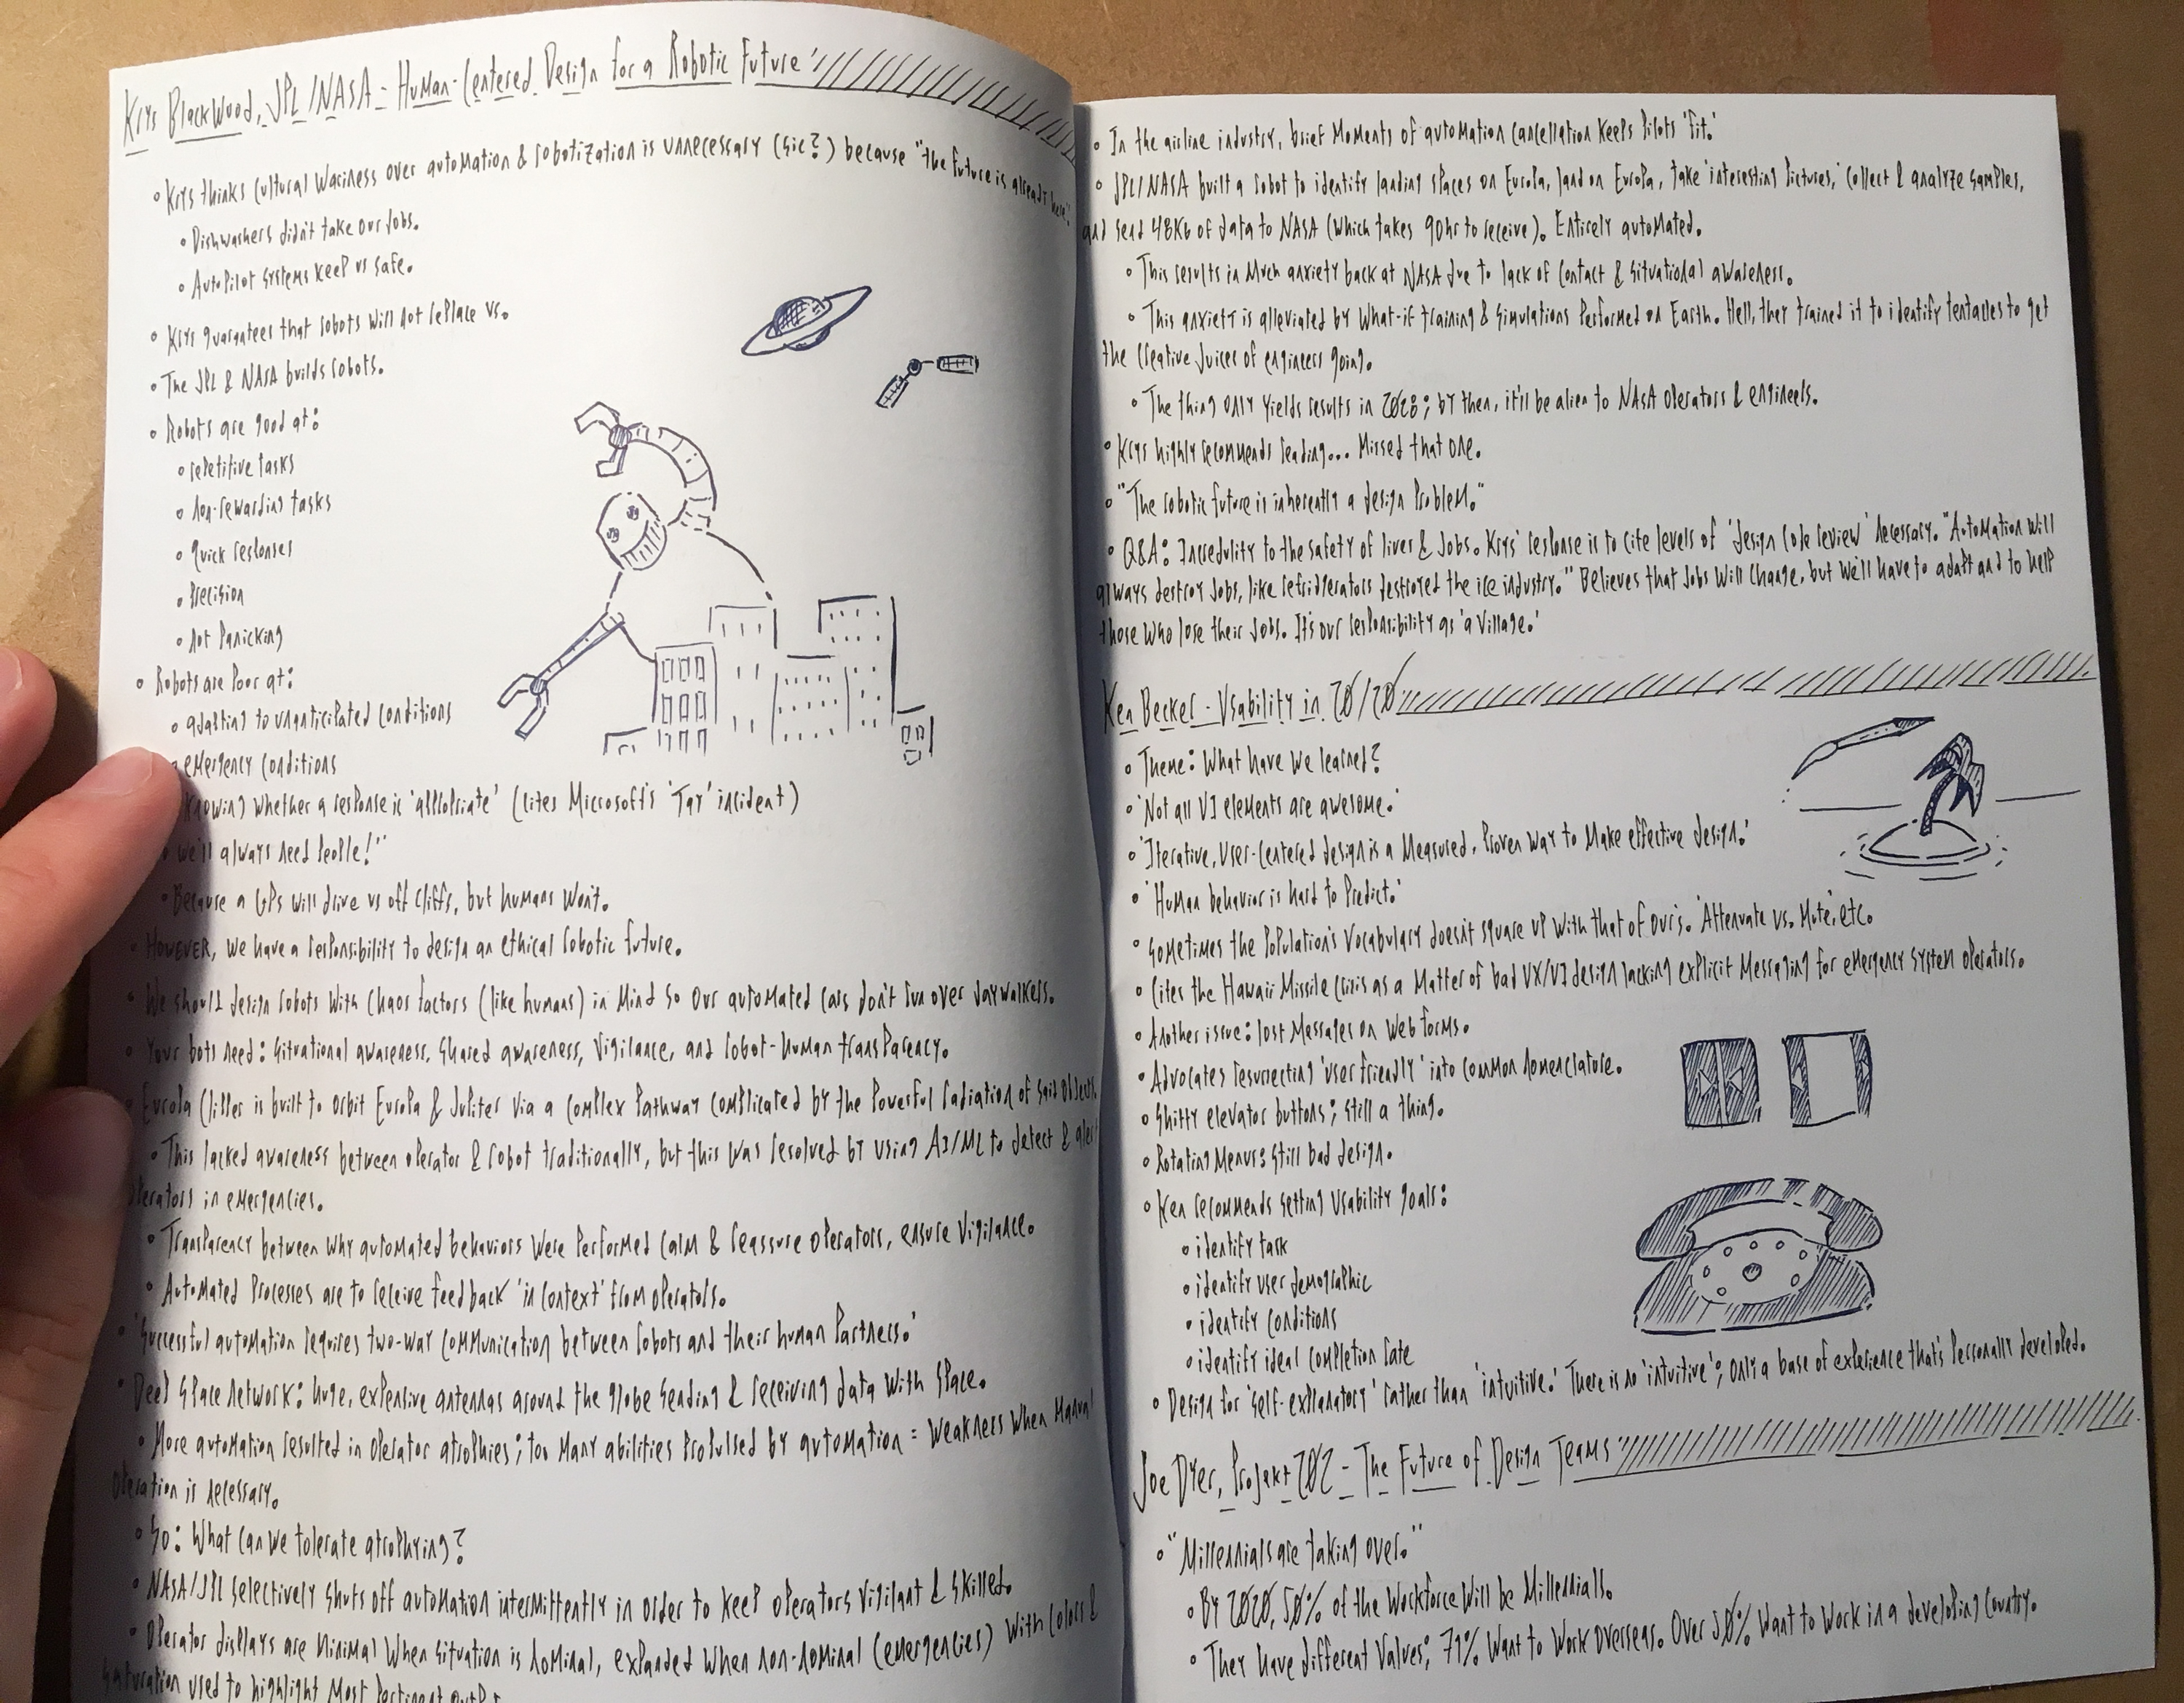 Krys Blackwood, JPL/NASA - Human-Centered Design for a Robotic Future
• Krys thinks cultural wariness over automation & robotization is unnecessary (sic?) because "the future is already here."
• Dishwashers didn't take our jobs.
• AutoPilot systems keep us safe.
• Krys guarantees that robots will not replace us.
• The JPL & NASA builds robots.
• Robots are good at:
• repetitive tasks
• non-rewarding tasks
• quick responses
• precision
• not panicking
• Robots are poor at:
• adapting to unanticipated conditions
• emergency conditions
knowing whether a response is 'appropriate' (cites Microsoft's 'Tay' incident)
• "We'll always need people!"
• Because a GPS will drive us off cliffs, but humans won't.
• However, we have a responsibility to design an ethical robotic future.
• We should design robots with chaos factors (like humans) in mind so our automated cars don't run over jaywalkers.
• Your bots need: situational awareness, shared awareness, vigilance, and robot-human transparency.
• Europa Clipper is built to orbit Europa & Jupiter via a complex pathway complicated by the powerful radiation of said objects.
• This lacked awareness between operator & robot traditionally, but this was resolved by using AI/ML to detect & alert
operators in emergencies.
• Transparency between why automated behaviors were performed calm & reassure operators, ensure vigilance.
• Automated processes are to receive feedback 'in context' from operators.
• 'Successful automation requires two-way communication between robots and their human partners.'
• Deep Space Network: huge, expensive antennas around the globe sending & receiving data with space.
• More automation resulted in operator atrophies; too many abilities propulsed by automation = weakness when manual
operation is necessary.
• So: What can we tolerate atrophying?
• NASA/JPL selectively shuts off automation intermittently in order to keep operators vigilant & skilled.
• Operator displays are minimal when situation is nominal, expanded when non-nominal (emergencies) with colors &
saturation used to highlight most pertinent
• In the airline industry, brief moments of automation cancellation keeps pilots 'fit.'
• JPL/NASA built a robot to identify landing spaces on Europa, land on Europa, take 'interesting pictures,' collect & analyze samples,
and send 48Kb of data to NASA (which takes 90hr to receive). Entirely automated.
• This results in much anxiety back at NASA due to lack of contact & situational awareness.
• This anxiety is alleviated by what-if training & simulations performed on Earth. Hell, they trained it to identify tentacles to get
the creative juices of engineers going.
• The thing ONLY yields results in 2028; by then, it'll be alien to NASA operators & engineers.
• Krys highly recommends reading... Missed that one.
• "The robotic future is inherently a design problem."
• Q&A: Incredulity to the safety of lives & jobs. Krys' response is to cite levels of 'design code review' necessary. "Automation will
always destroy jobs, like refridgerators destroyed the ice industry." Believes that jobs will change, but we'll have to adapt and to help
those who lose their jobs. It's our responsibility as 'a village.'
Ken Becker - Usability in 20/20
• Theme: What have we learned?
• 'Not all UI elements are awesome.'
• 'Iterative, user-centered design is a measured, proven way to make effective design.'
• 'Human behavior is hard to predict.'
• Sometimes the population's vocabulary doesn't square up with that of our's. 'Attenuate vs. Mute,' etc.
• Cites the Hawaii Missile Crisis as a matter of bad UX/UI design lacking explicit messaging for emergency system operators.
• Another issue: lost messages on web forms.
• Advocates resurrecting 'user friendly' into common nomenclature.
• Shitty elevator buttons; still a thing.
• Rotating menus: still bad design.
• Ken recommends setting usability goals:
• identify task
• identify user demographic
• identify conditions
• identify ideal completion rate
• Design for 'self-explanatory' rather than 'intuitive.' There is no 'intuitive'; only a base of experience that's personally developed.
Joe Dyer, Projekt202 - The Future of Design Teams
• "Millennials are taking over."
• By 2020, 50% of the workforce will be Millennials.
• They have different values; 71% want to work overseas. Over 50% want to work in a developing country.